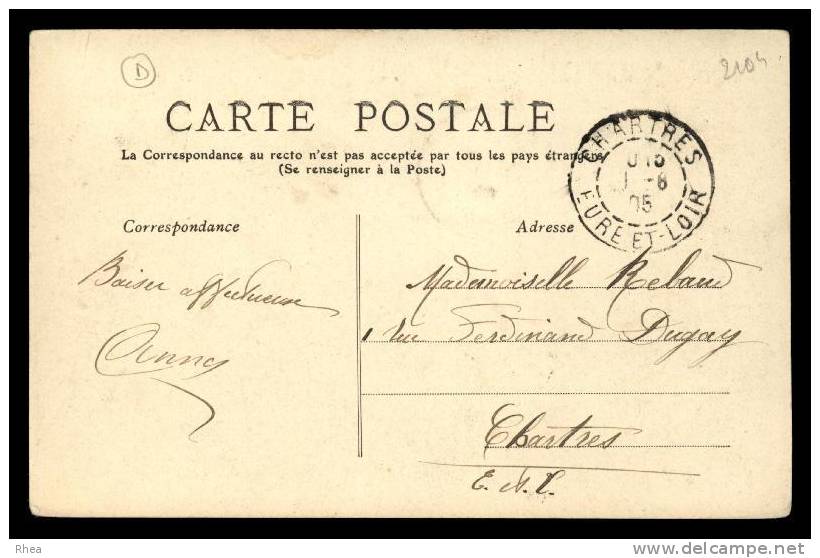 D
2104
CARTE POSTALE
La Correspondance au recto n'est pas acceptée par tous les pays étrangers
(Se renseigner à la Poste)
CHARTRES
EURE-ET-LOIR
Correspondance
Adresse
Baiser affectueux
Mademoiselle Rebaud
1 rue Ferdinand Dugay
Chartres
Rhea
www.delcampe.net